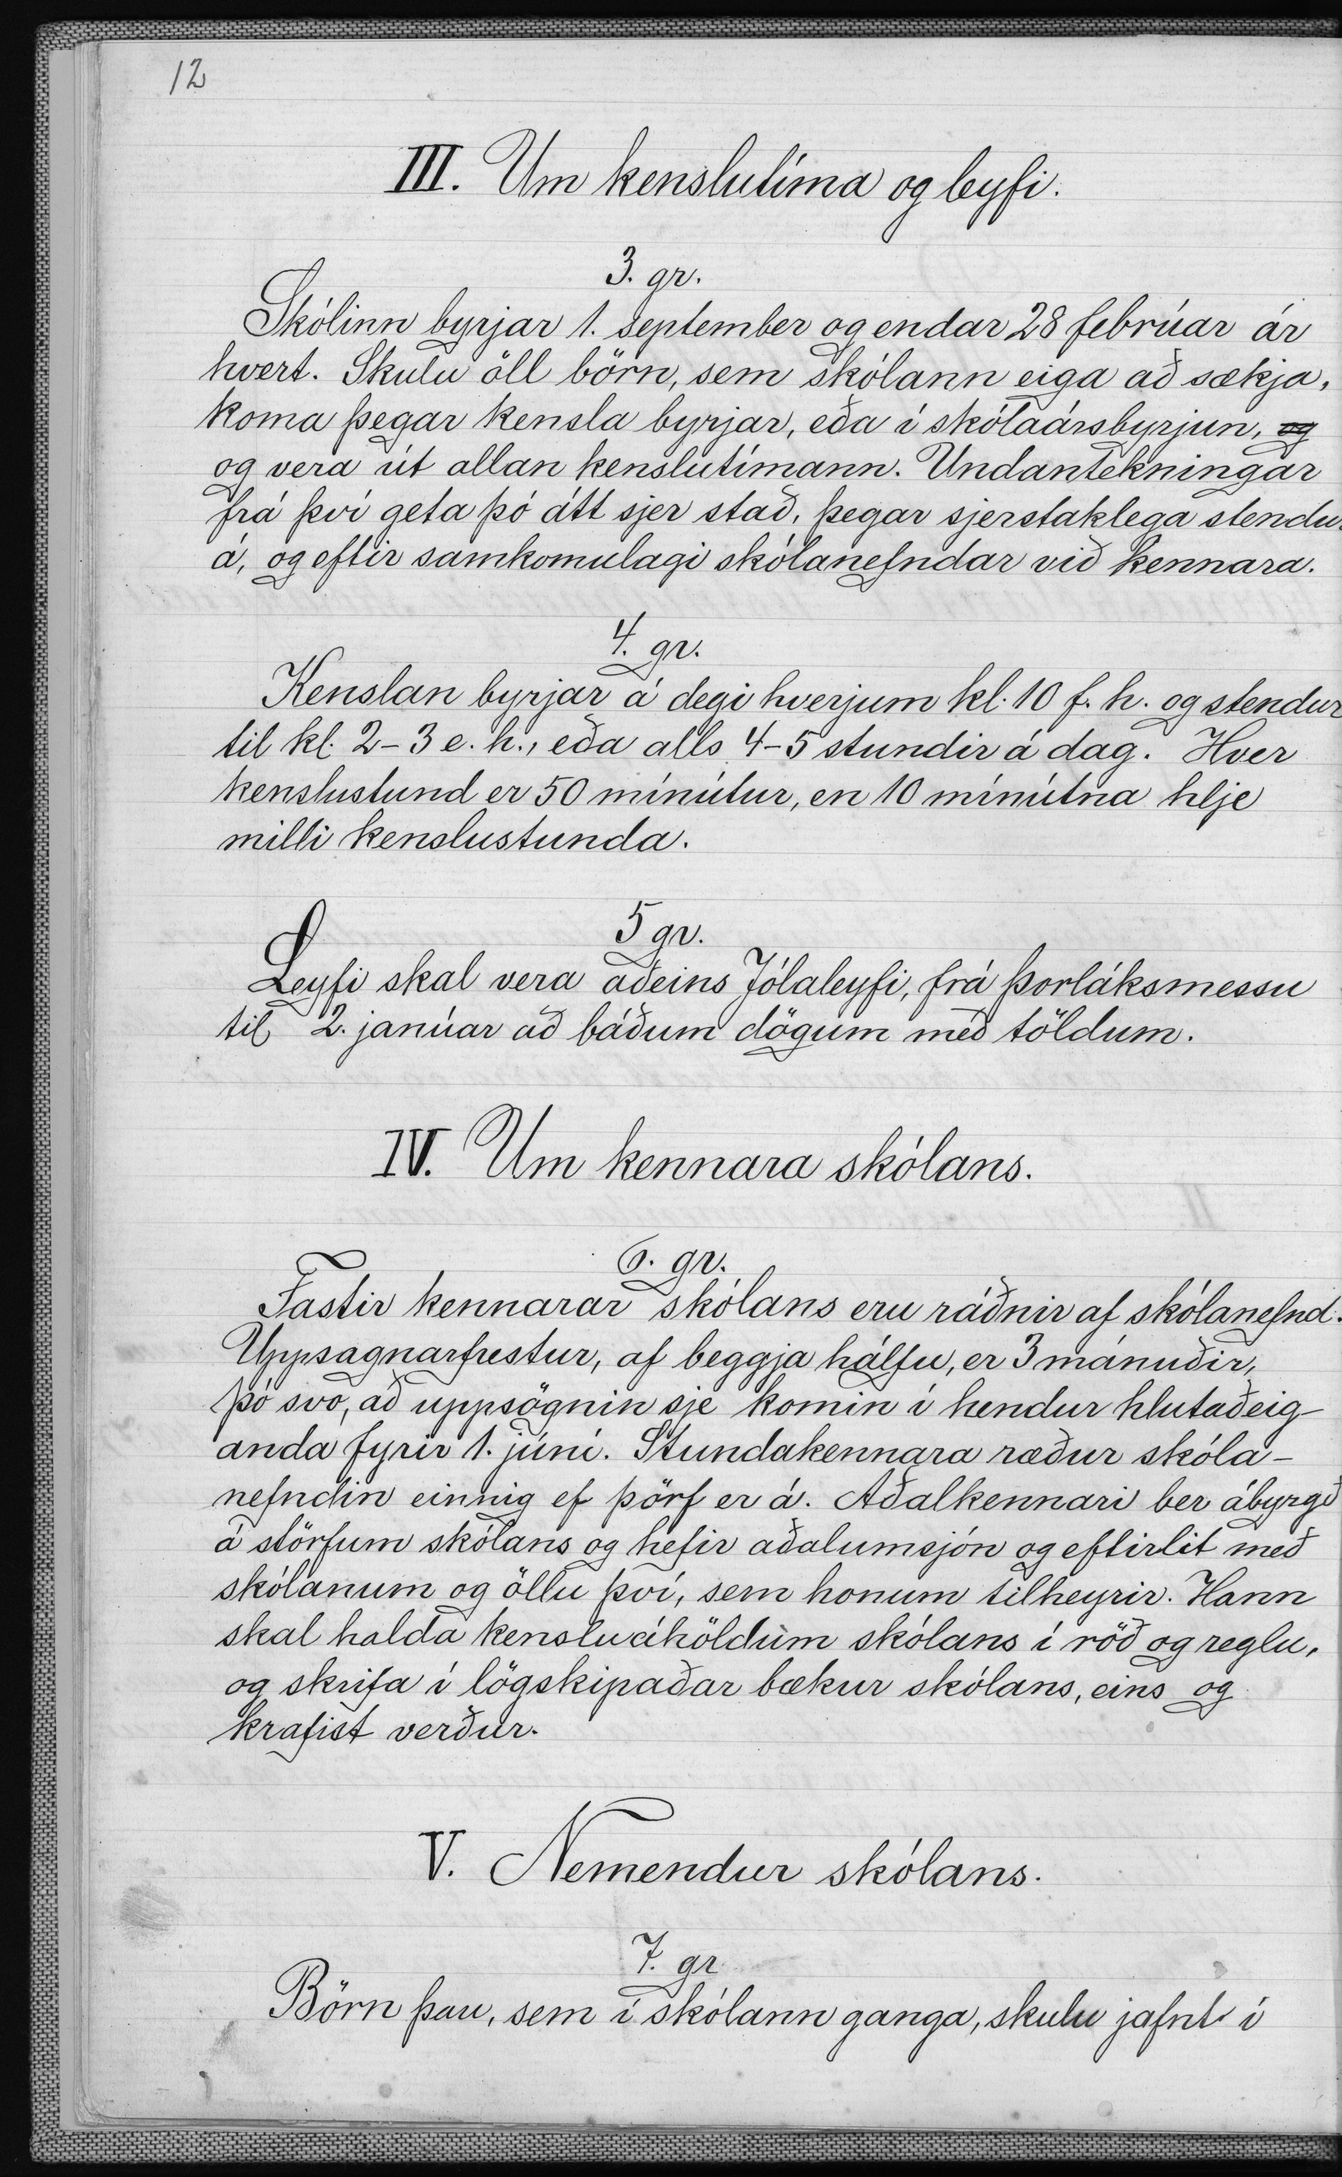 12
III. Um kenslutíma og leyfi.
3. gr.
Skólinn byrjar 1. september og endar 28 febrúar ár
hvert. Skulu öll börn, sem skólann eiga að sækja,
koma þegar kensla byrjar, eða í skólaársbyrjun, og
og vera út allan kenslutímann. Undantekningar
frá því geta þó átt sjer stað, þegar sjerstaklega stendur
á, og eftir samkomulagi skólanefndar við kennara.
4. gr.
Kenslan byrjar á degi hverjum kl. 10 f. h. og stendur
til kl. 2-3 e. h., eða alls 4-5 stundir á dag. Hver
kenslustund er 50 mínútur, en 10 mínútna hlje
milli kenslustunda.
5 gr.
Leyfi skal vera aðeins Jólaleyfi, frá Þorláksmessu
til 2. janúar að báðum dögum með töldum.
IV. Um kennara skólans.
6. gr.
Fastir kennarar skólans eru ráðnir af skólanefnd.
Uppsagnarfrestur, af beggja hálfu, er 3 mánuðir,
þó svo, að uppsögnin sje komin í hendur hlutaðeig-
anda fyrir 1. júní. Stundakennara ræður skóla-
nefndin einnig ef þörf er á. Aðalkennari ber ábyrgð
á störfum skólans og hefir aðalumsjón og eftirlit með
skólanum og öllu því, sem honum tilheyrir. Hann
skal halda kensluáhöldum skólans í röð og reglu,
og skrifa í lögskipaðar bækur skólans, eins og
krafist verður.
V. Nemendur skólans.
7. gr
Börn þau, sem í skólann ganga, skulu jafnt í